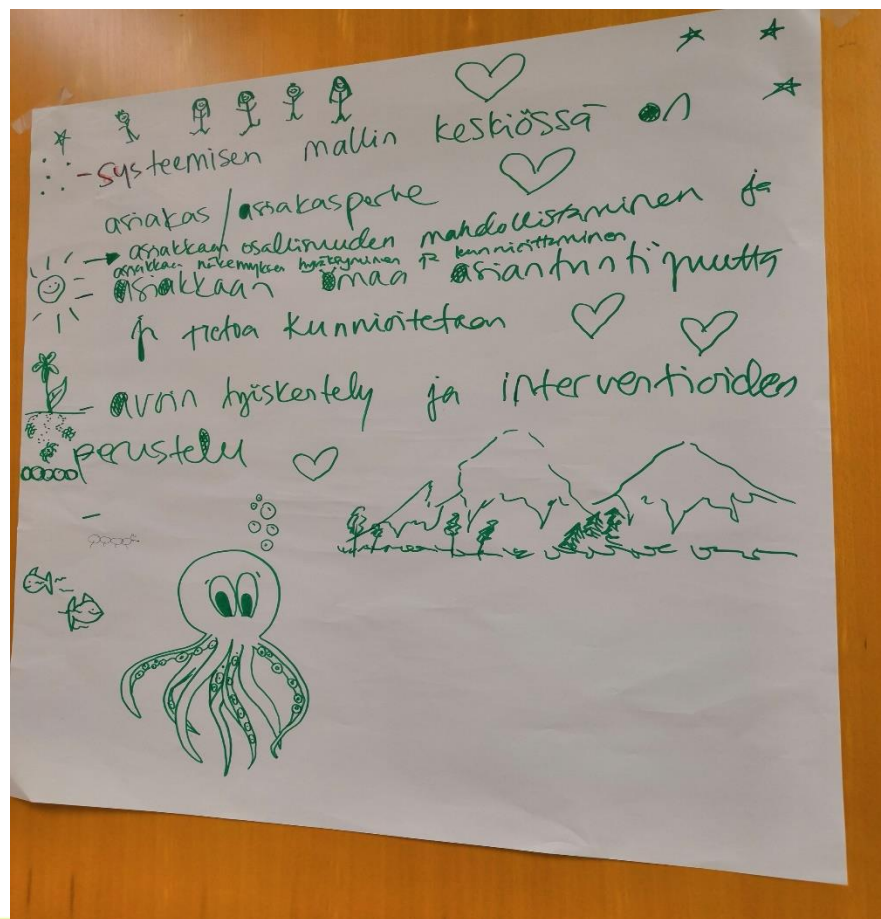 - systeemisen mallin keskiössä on
asiakas / asiakasperhe
→ asiakkaan osallisuuden mahdollistaminen ja
asiakkaan näkemyksen hyväksyminen ja kunnioittaminen
asiakkaan omaa asiantuntijuutta
ja tietoa kunnioitetaan
- avoin työskentely ja interventioiden
perustelu
-